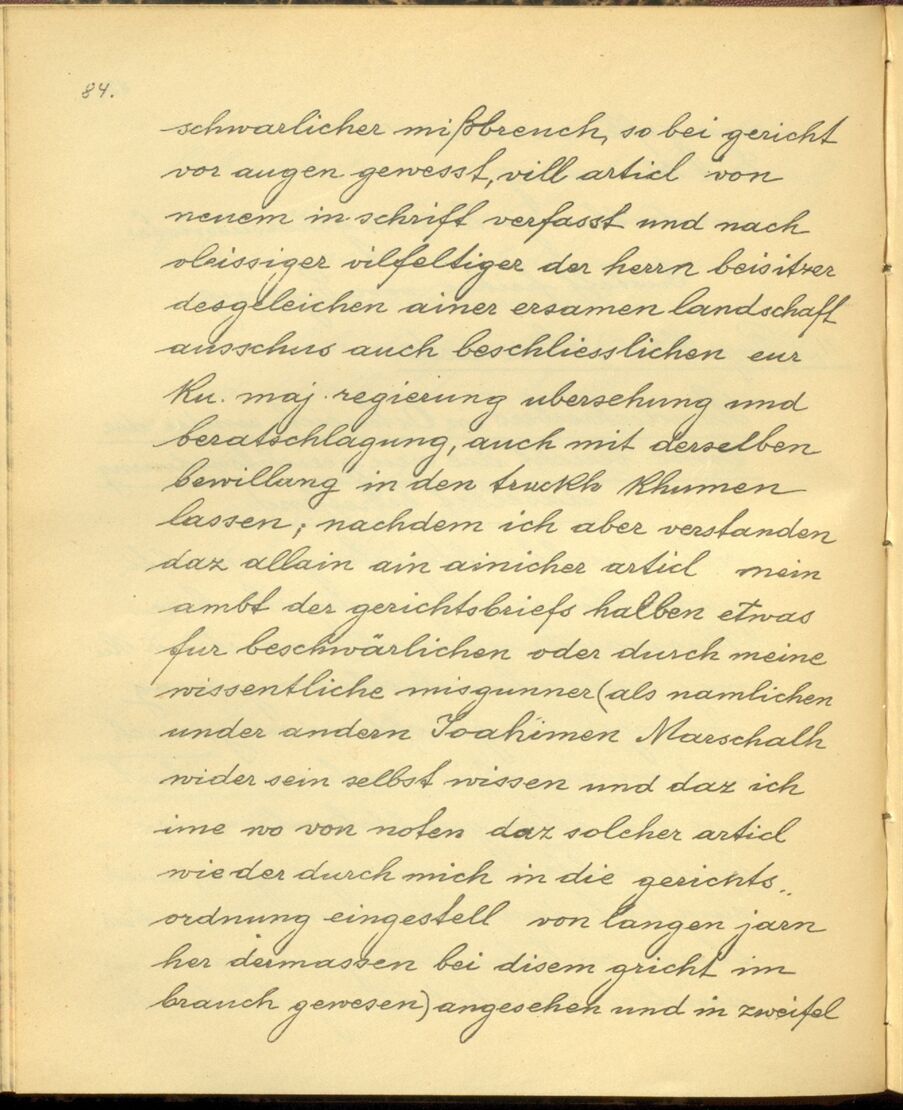 84.
schwarlicher mißbreuch, so bei gericht
vor augen gewesst, vill articl von
neuem in schrift verfasst und nach
vleissiger vilfeltiger der herrn beisitzer
desgeleichen ainer ersamen landschaft
ausschus auch beschliesslichen eur
Ku. maj. regierung ubersehung und
beratschlagung, auch mit derselben
bewillung in den truckh khumen
lassen; nachdem ich aber verstanden
daz allain ain ainicher articl mein
ambt der gerichtsbriefs halben etwas
fur beschwärlichen oder durch meine
wissentliche misgunner (als namlichen
under andern Joahimen Marschalh
wider sein selbst wissen und daz ich
ime wo von noten daz solcher articl
wieder durch mich in die gerichts„
ordnung eingestell von langen jarn
her dermassen bei disem gricht im
brauch gewesen) angesehen und in zweifel